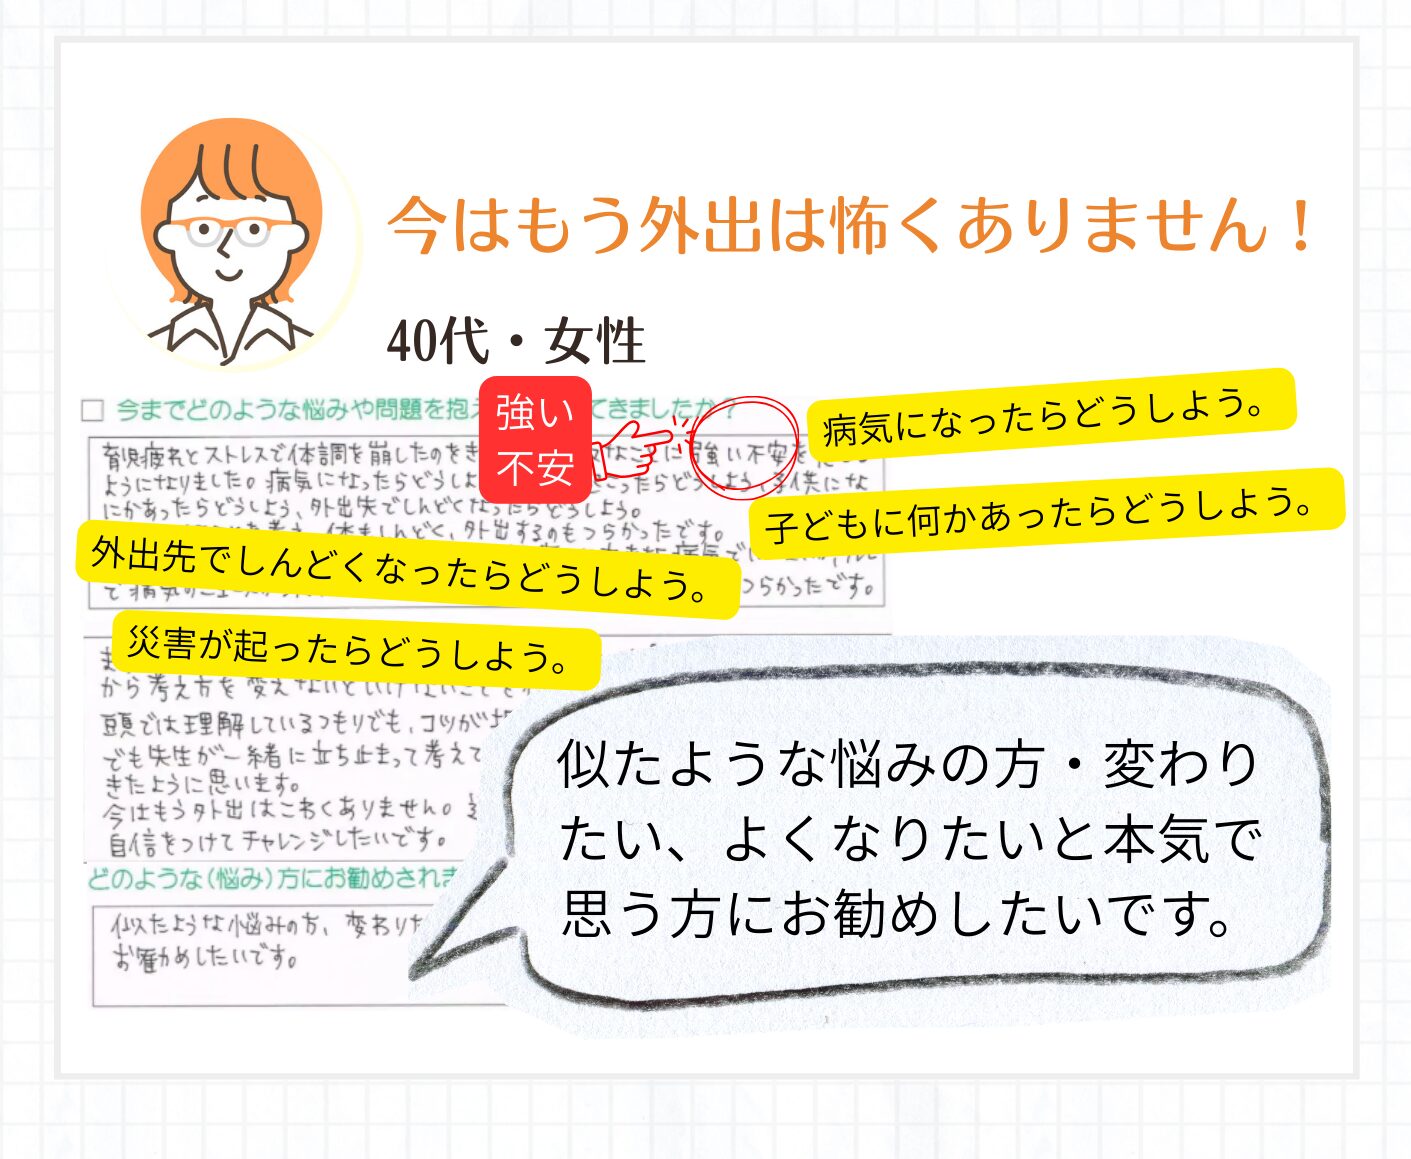 今はもう外出は怖くありません！
40代・女性
□ 今までどのような悩みや問題を抱え てきましたか？
強い
不安
病気になったらどうしよう。
育児疲れとストレスで体調を崩したのをき なことに強い不安を
ようになりました。病気になったらどうしよ こったらどうしよう、子供にな
子どもに何かあったらどうしよう。
にかあったらどうしよう、外出先でしんどくなったらどうしよう。
体もしんどく、外出するのもつらかったです。
外出先でしんどくなったらどうしよう。
つらかったです。
災害が起ったらどうしよう。
から考え方を変えないといけないことを
頭では理解しているつもりでも、コツが
でも先生が一緒に立ち止まって考えて
きたように思います。
今はもう外出はこわくありません。
自信をつけてチャレンジしたいです。
似たような悩みの方・変わり
たい、よくなりたいと本気で
思う方にお勧めしたいです。
どのような(悩み)方にお勧めされま
似たような悩みの方、変わりた
お勧めしたいです。